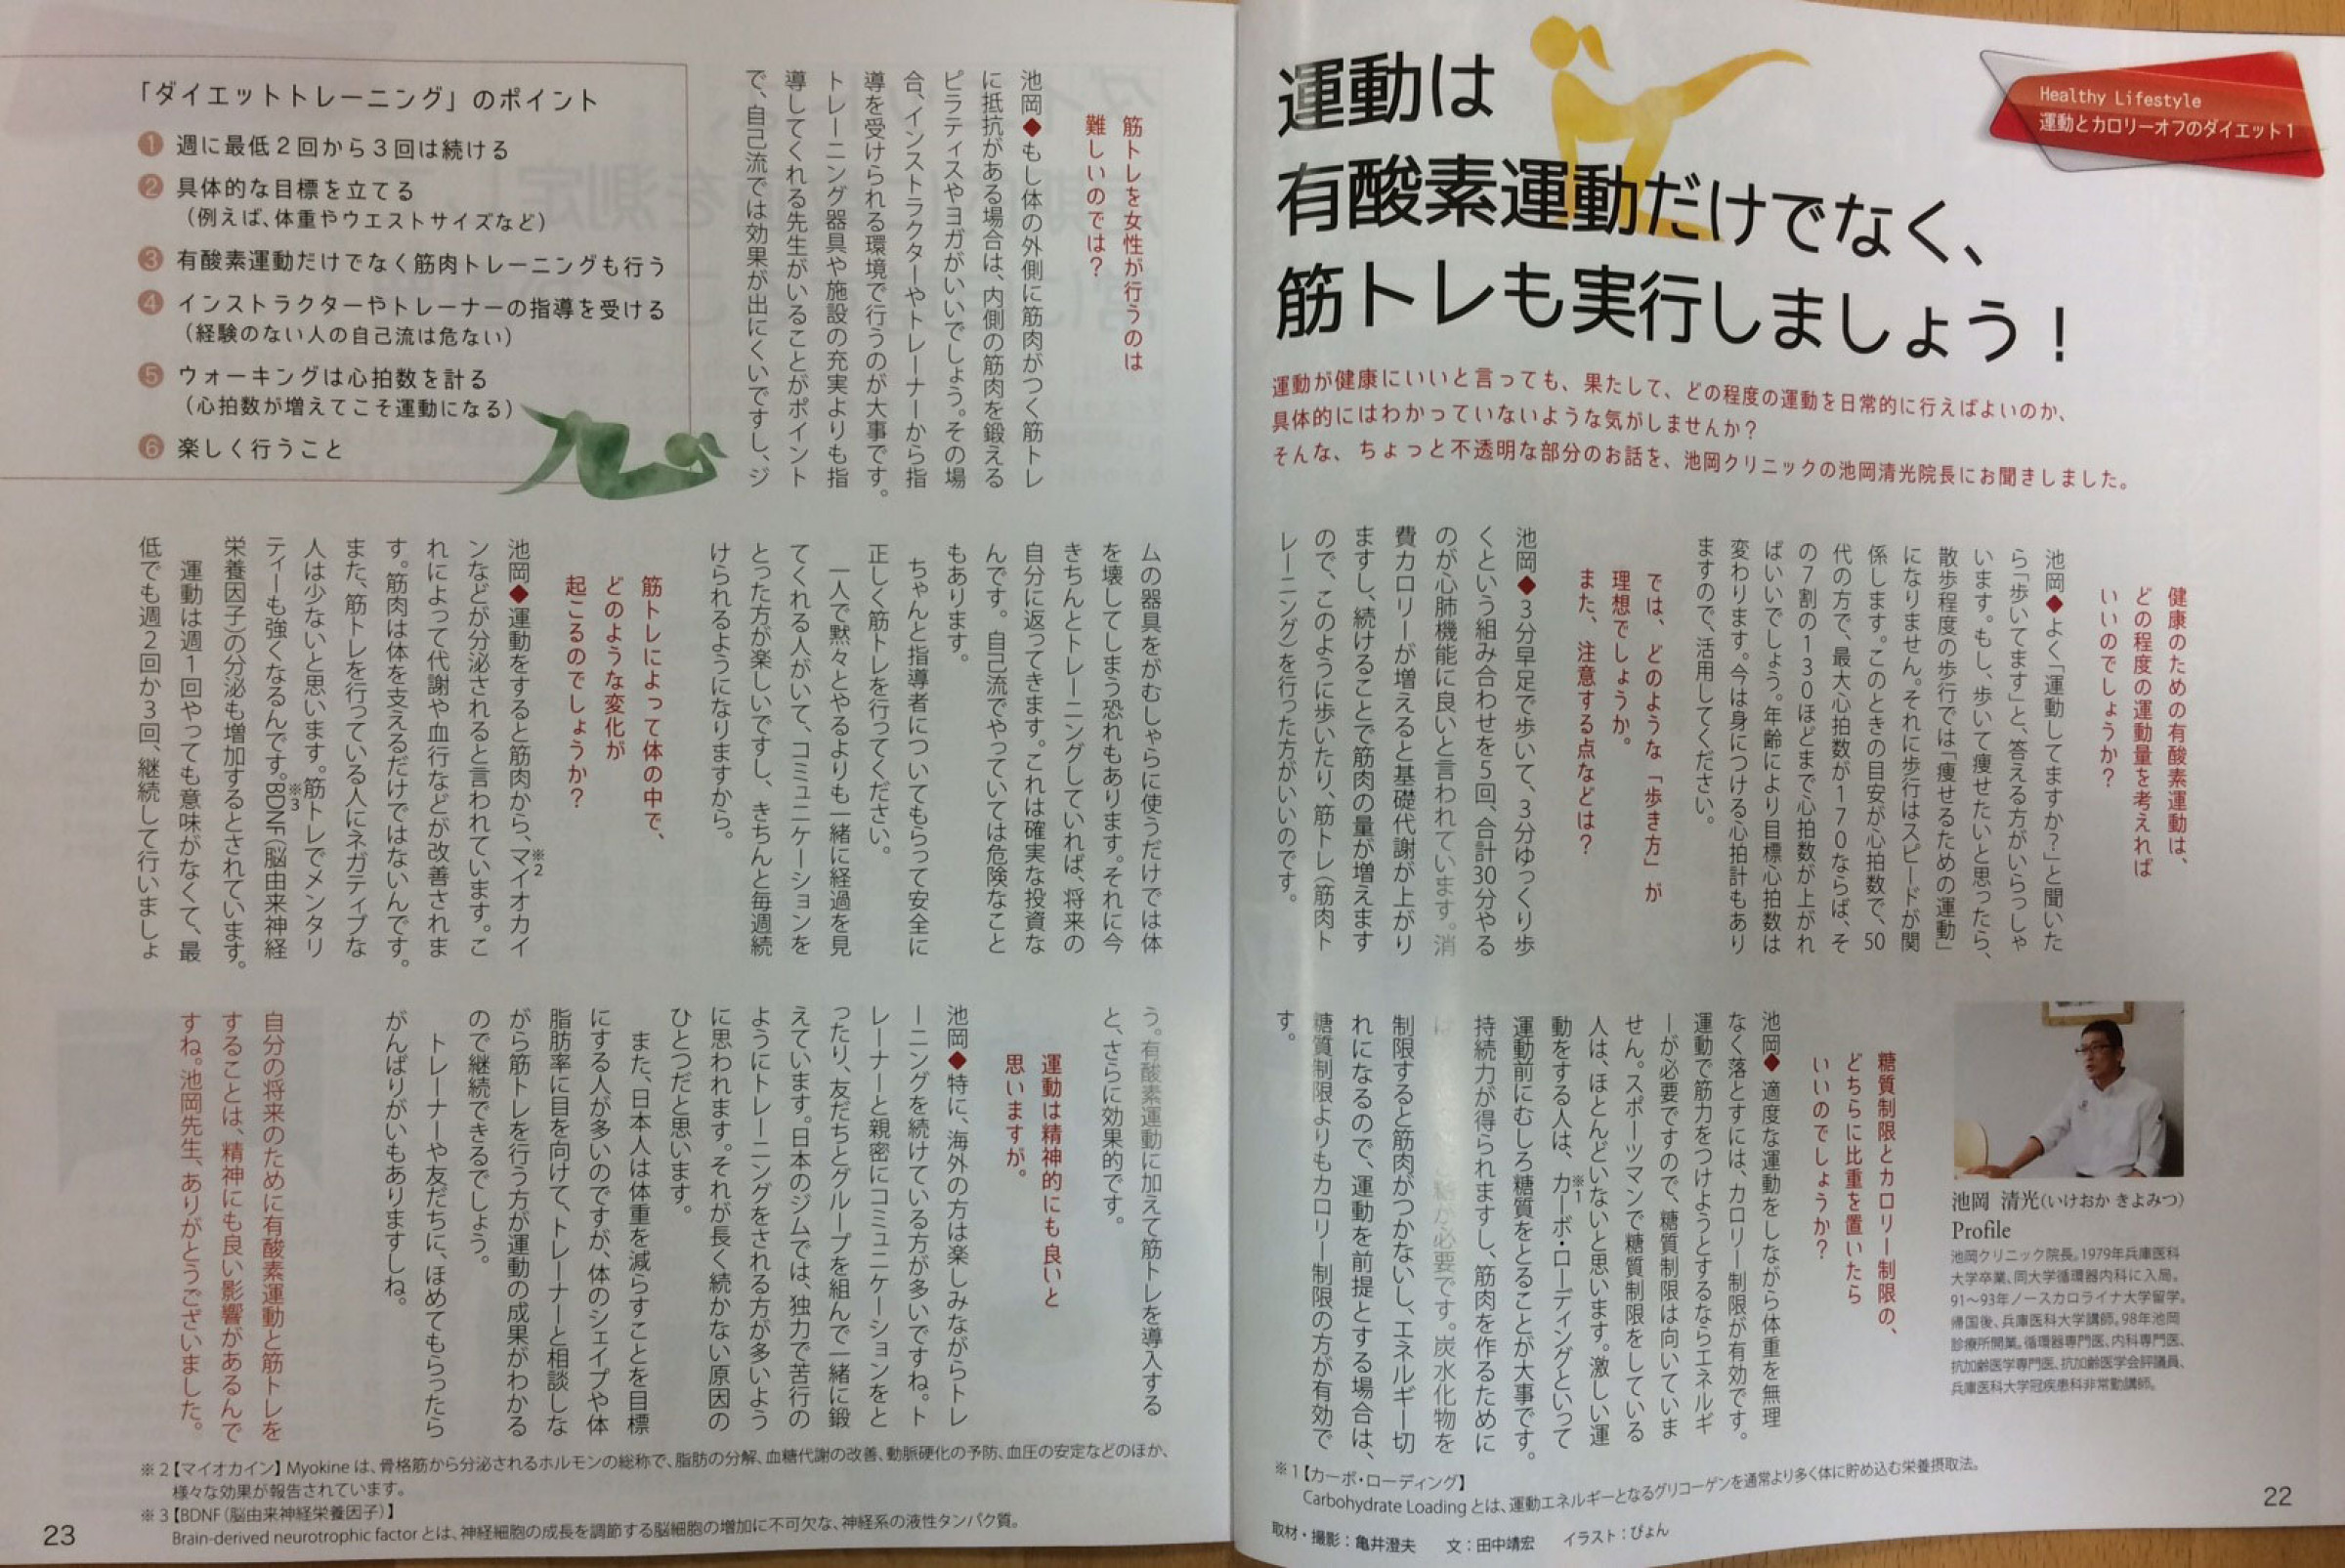 Healthy Lifestyle
運動とカロリーオフのダイエット1
運動は
有酸素運動だけでなく、
筋トレも実行しましょう！
運動が健康にいいと言っても、果たして、どの程度の運動を日常的に行えばよいのか、
具体的にはわかっていないような気がしませんか？
そんな、ちょっと不透明な部分のお話を、池岡クリニックの池岡清光院長にお聞きしました。
健康のための有酸素運動は、
どの程度の運動量を考えれば
いいのでしょうか？
池岡◆よく「運動してますか？」と聞いた
ら「歩いてます」と、答える方がいらっしゃ
います。もし、歩いて痩せたいと思ったら、
散歩程度の歩行では「痩せるための運動」
になりません。それに歩行はスピードが関
係します。このときの目安が心拍数で、50
代の方で、最大心拍数が170ならば、そ
の7割の130ほどまで心拍数が上がれ
ばいいでしょう。年齢により目標心拍数は
変わります。今は身につける心拍計もあり
ますので、活用してください。
では、どのような「歩き方」が
理想でしょうか。
また、注意する点などは？
池岡◆3分早足で歩いて、3分ゆっくり歩
くという組み合わせを5回、合計30分やる
のが心肺機能に良いと言われています。消
費カロリーが増えると基礎代謝が上がり
ますし、続けることで筋肉の量が増えます
ので、このように歩いたり、筋トレ（筋肉ト
レーニング）を行った方がいいのです。
糖質制限とカロリー制限の、
どちらに比重を置いたら
いいのでしょうか？
池岡◆適度な運動をしながら体重を無理
なく落とすには、カロリー制限が有効です。
運動で筋力をつけようとするならエネルギ
ーが必要ですので、糖質制限は向いていま
せん。スポーツマンで糖質制限をしている
人は、ほとんどいないと思います。激しい運
動をする人は、カーボ・ローディングといって※1
運動前にむしろ糖質をとることが大事です。
持続力が得られますし、筋肉を作るために
は 糖が必要です。炭水化物を
制限すると筋肉がつかないし、エネルギー切
れになるので、運動を前提とする場合は、
糖質制限よりもカロリー制限の方が有効で
す。
池岡 清光（いけおか きよみつ）
Profile
池岡クリニック院長。1979年兵庫医科
大学卒業、同大学循環器内科に入局。
91～93年ノースカロライナ大学留学。
帰国後、兵庫医科大学講師。98年池岡
診療所開業。循環器専門医、内科専門医、
抗加齢医学専門医、抗加齢医学会評議員、
兵庫医科大学冠疾患科非常勤講師。
※1【カーボ・ローディング】
Carbohydrate Loadingとは、運動エネルギーとなるグリコーゲンを通常より多く体に貯め込む栄養摂取法。
取材・撮影：亀井澄夫 文：田中靖宏 イラスト：ぴょん
22
筋トレを女性が行うのは
難しいのでは？
池岡◆もし体の外側に筋肉がつく筋トレ
に抵抗がある場合は、内側の筋肉を鍛える
ピラティスやヨガがいいでしょう。その場
合、インストラクターやトレーナーから指
導を受けられる環境で行うのが大事です。
トレーニング器具や施設の充実よりも指
導してくれる先生がいることがポイント
で、自己流では効果が出にくいですし、ジ
「ダイエットトレーニング」のポイント
1 週に最低2回から3回は続ける
2 具体的な目標を立てる
（例えば、体重やウエストサイズなど）
3 有酸素運動だけでなく筋肉トレーニングも行う
4 インストラクターやトレーナーの指導を受ける
（経験のない人の自己流は危ない）
5 ウォーキングは心拍数を計る
（心拍数が増えてこそ運動になる）
6 楽しく行うこと
ムの器具をがむしゃらに使うだけでは体
を壊してしまう恐れもあります。それに今
きちんとトレーニングしていれば、将来の
自分に返ってきます。これは確実な投資な
んです。自己流でやっていては危険なこと
もあります。
ちゃんと指導者についてもらって安全に
正しく筋トレを行ってください。
一人で黙々とやるよりも一緒に経過を見
てくれる人がいて、コミュニケーションを
とった方が楽しいですし、きちんと毎週続
けられるようになりますから。
筋トレによって体の中で、
どのような変化が
起こるのでしょうか？
池岡◆運動をすると筋肉から、マイオカイ※2
ンなどが分泌されると言われています。こ
れによって代謝や血行などが改善されま
す。筋肉は体を支えるだけではないんです。
また、筋トレを行っている人にネガティブな
人は少ないと思います。筋トレでメンタリ
ティーも強くなるんです。BDNF（脳由来神経※3
栄養因子）の分泌も増加するとされています。
運動は週1回やっても意味がなくて、最
低でも週2回か3回、継続して行いましょ
う。有酸素運動に加えて筋トレを導入する
と、さらに効果的です。
運動は精神的にも良いと
思いますが。
池岡◆特に、海外の方は楽しみながらトレ
ーニングを続けている方が多いですね。ト
レーナーと親密にコミュニケーションをと
ったり、友だちとグループを組んで一緒に鍛
えています。日本のジムでは、独力で苦行の
ようにトレーニングをされる方が多いよう
に思われます。それが長く続かない原因の
ひとつだと思います。
また、日本人は体重を減らすことを目標
にする人が多いのですが、体のシェイプや体
脂肪率に目を向けて、トレーナーと相談しな
がら筋トレを行う方が運動の成果がわかる
ので継続できるでしょう。
トレーナーや友だちに、ほめてもらったら
がんばりがいもありますしね。
自分の将来のために有酸素運動と筋トレを
することは、精神にも良い影響があるんで
すね。池岡先生、ありがとうございました。
※2【マイオカイン】Myokineは、骨格筋から分泌されるホルモンの総称で、脂肪の分解、血糖代謝の改善、動脈硬化の予防、血圧の安定などのほか、
様々な効果が報告されています。
※3【BDNF（脳由来神経栄養因子）】
Brain-derived neurotrophic factorとは、神経細胞の成長を調節する脳細胞の増加に不可欠な、神経系の液性タンパク質。
23